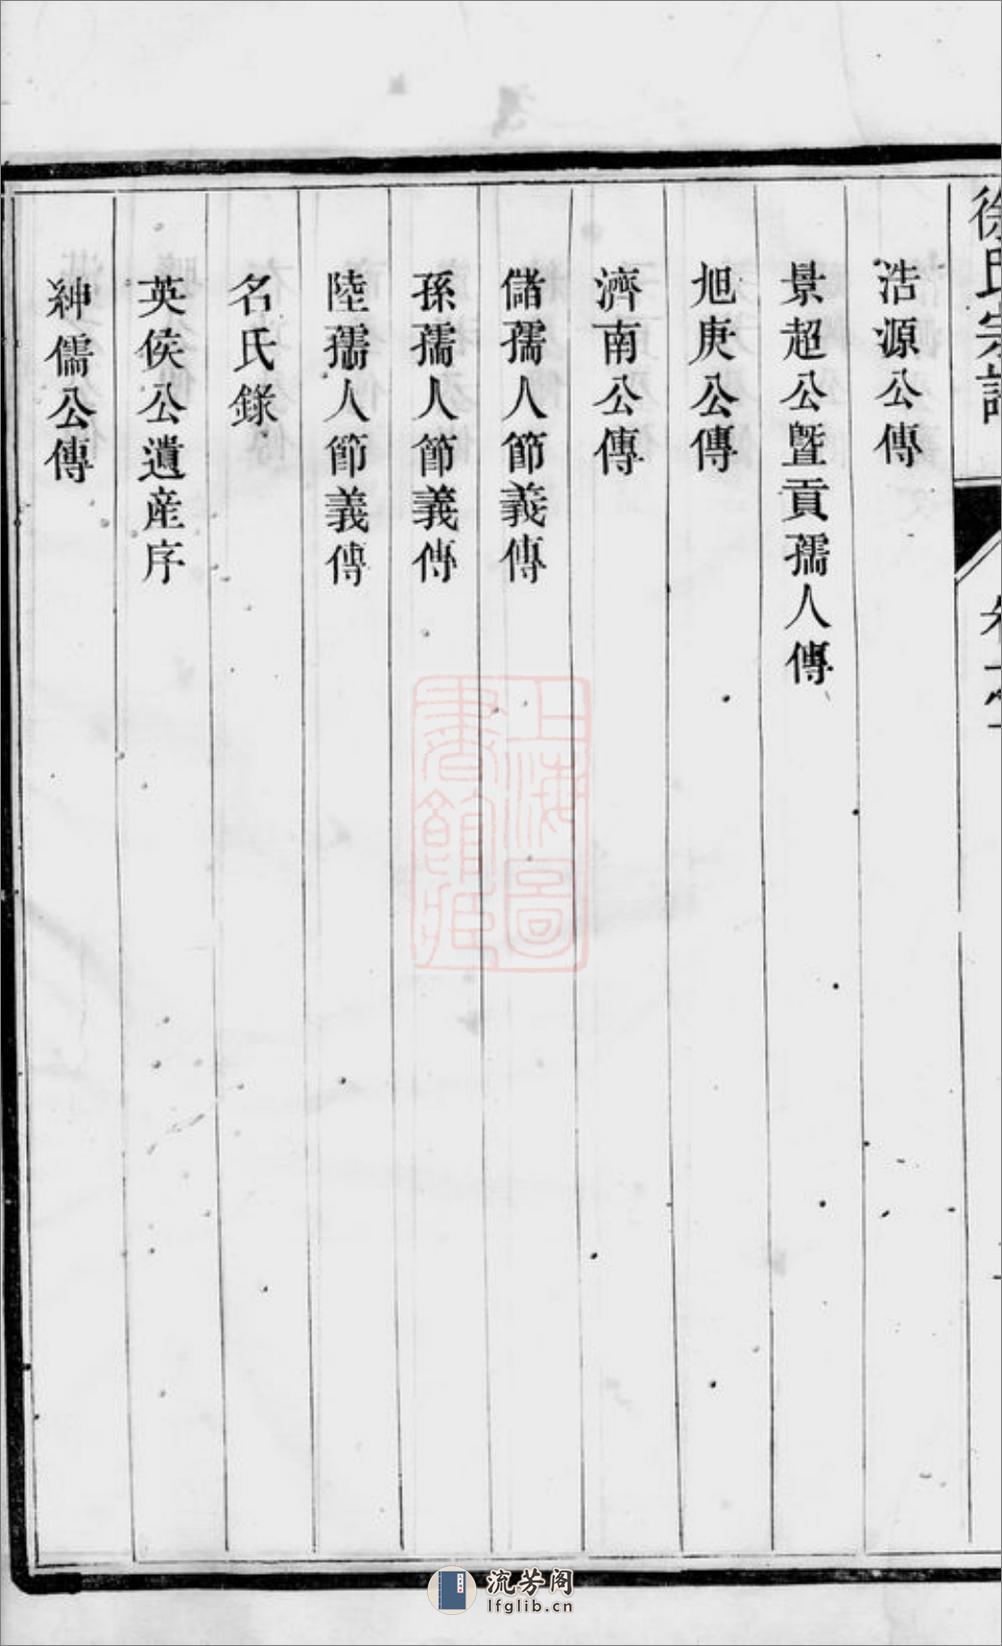 徐氏宗譜
浩源公傳
景超公曁貢孺人傳
旭庚公傳
濟南公傳
儲孺人節義傳
孫孺人節義傳
陸孺人節義傳
名氏錄
英侯公遺産序
紳儒公傳
上海圖
書館藏
流芳阁
lfglib.cn